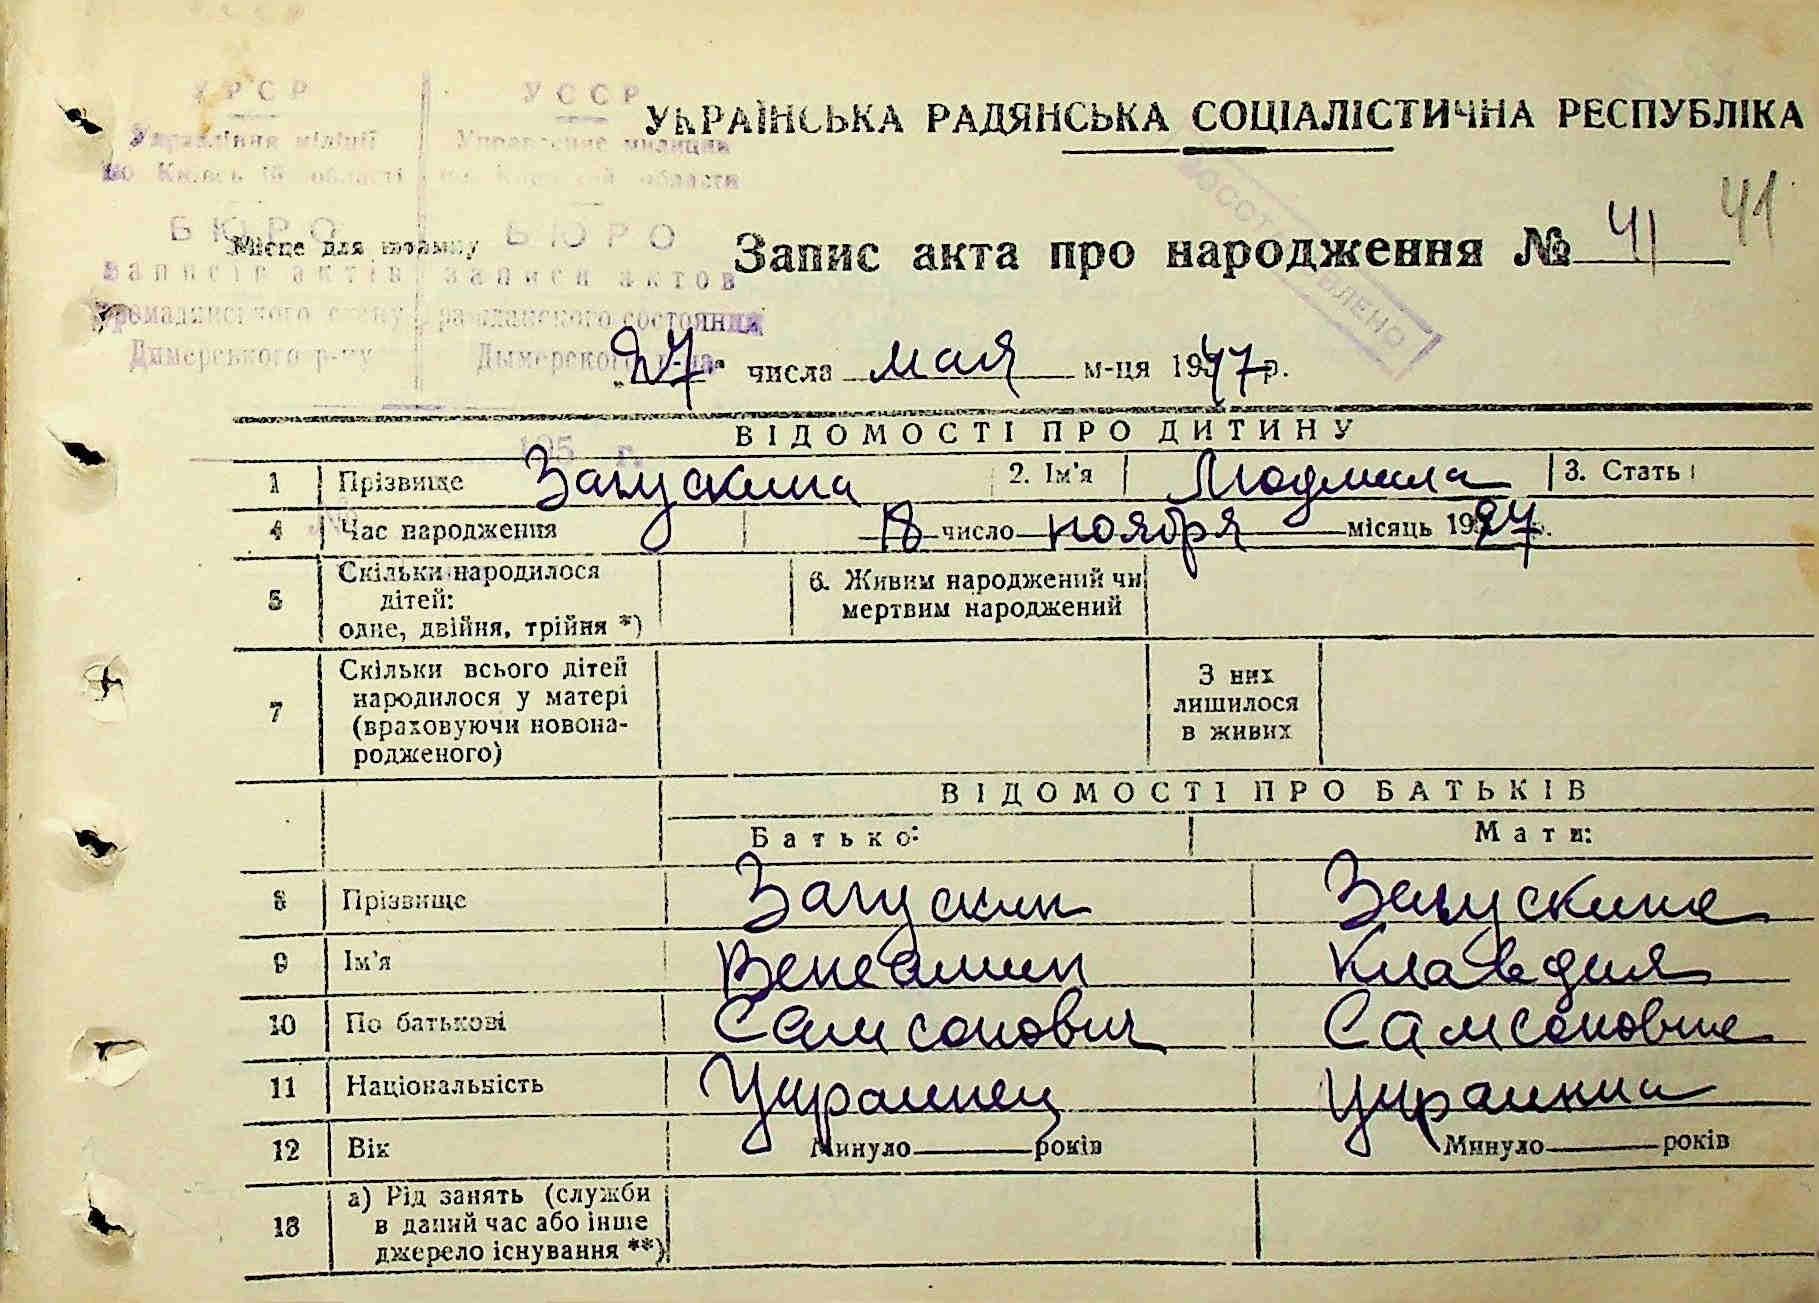 УРСР УССР
Управління міліції Управление милиции
по Київській області по Киевской области
БЮРО БЮРО
записів актів записи актов
громадянського стану гражданского состояния
Димерського р-ну Дымерского р-на
195 г.
УКРАЇНСЬКА РАДЯНСЬКА СОЦІАЛІСТИЧНА РЕСПУБЛІКА
Місце для штампу
Запис акта про народження № 41 41
ВОССТАНОВЛЕНО
„27" числа мая м-ця 1947 р.
ВІДОМОСТІ ПРО ДИТИНУ
1 Прізвище Загускина 2. Ім'я Людмила 3. Стать
4 Час народження 18 число ноября місяць 1927 р.
5 Скільки народилося дітей: одне, двійня, трійня *) 6. Живим народжений чи мертвим народжений
7 Скільки всього дітей народилося у матері (враховуючи новонародженого) З них лишилося в живих
ВІДОМОСТІ ПРО БАТЬКІВ
Батько: Мати:
8 Прізвище Загускин Загускина
9 Ім'я Венеамин Клавдия
10 По батькові Самсонович Самсоновна
11 Національність Украинец Украинка
12 Вік Минуло років Минуло років
13 а) Рід занять (служби в даний час або інше джерело існування **)